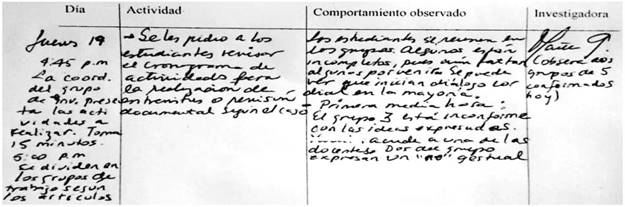 Día
Jueves 19
4:45 p.m
La coord.
del grupo
de inv. presen
ta las acti
vidades a
realizar. Toma
15 minutos.
5:00 p.m
Se dividen en
los grupos de
trabajo según
los artículos
Actividad
→ Se les pidió a los
estudiantes revisar
el cronograma de
actividades para
la realización de
entrevistas o revisión
documental según el caso
Comportamiento observado
Los estudiantes se reunen en
los grupos. Algunos están
incompletos, pues aún faltan
algunos por venir. Se puede
ver que inician diálogo cor
dial en la mayoría.
- Primera media hora:
El grupo 3 está inconforme
con las ideas expresadas.
acude a una de las
docentes. Dos del grupo
expresan un "no" gestual
Investigadora
(observé dos
grupos de 5
conformados
hoy)